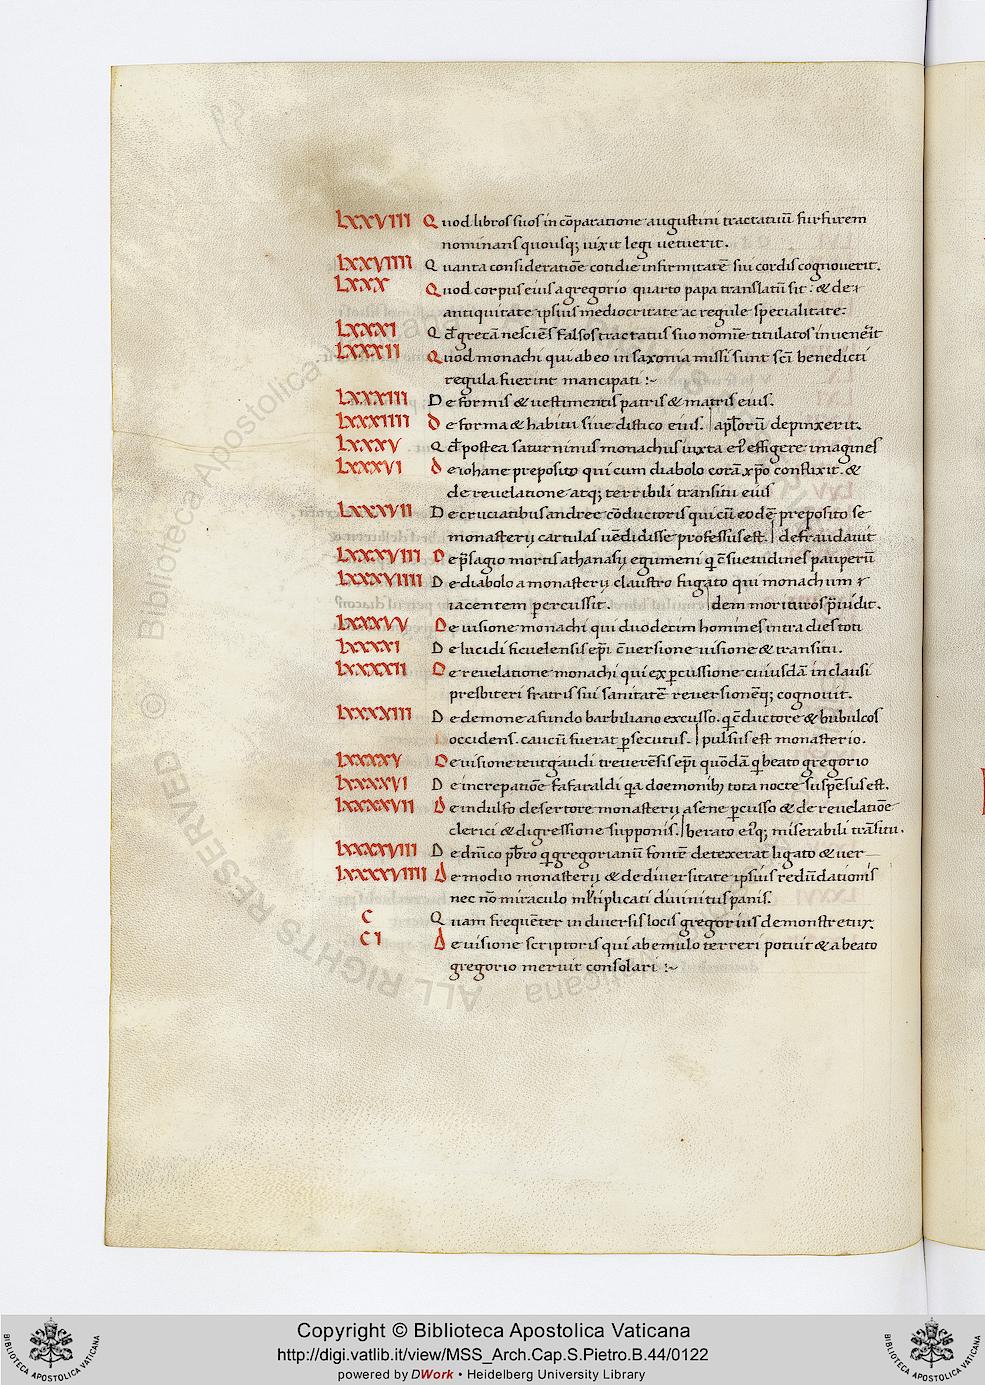 LXXVIII Quod libros suos in cōparatione augustini tractatuū furfurem
nominans quousq; uixit legi uetuerit.
LXXVIIII Quanta consideratiōe cotidie infirmitatē sui cordis cognouerit.
LXXX Quod corpus eius a gregorio quarto papa translatū sit: & de
antiquitate ipsius mediocritate ac regule specialitate:
LXXXI Qđ grecā nesciēs falsos tractatus suo nomīe titulatos inuenerit
LXXXII Quod monachi qui ab eo in saxonia missi sunt scī benedicti
regula fuerint mancipati :~
LXXXIII De formis & uestimentis patris & matris eius.
LXXXIIII De forma & habitu siue distico eius. | apłorū depinxerit.
LXXXV Qđ postea saturninus monachus iuxta ei' effigere imagines
LXXXVI De iohane preposito qui cum diabolo corā xp̄o conflixit. &
de reuelatione atq; terribili transitu eius
LXXXVII De cruciatibus andree cōductoris qui cū eodē preposito se
monasterij cartulas uēdidisse professus est. | defraudauit
LXXXVIII De p̄sagio mortis athanasij egumeni q̄ c̄suetudines pauperū
LXXXVIIII De diabolo a monasterij claustro fugato qui monachum
iacentem percussit. | dem morituros p̄uidit.
LXXXVV De uisione monachi qui duodecim homines intra dies toti
LXXXXI De lucidi ficuelensis ep̄i c̄uersione uisione & transitu.
LXXXXII De reuelatione monachi qui ex percussione cuiusdā in clausi
presbiteri fratris sui sanitatē reuersionēq; cognouit.
LXXXXIII De demone a fundo barbiliano excusso. q̄ c̄ductore & bubulcos
occidens. caucū fuerat persecutus. | pulsus est monasterio.
LXXXXV De uisione teutgaudi treuerēsis ep̄i quōdā. q̄ beato gregorio
LXXXXVI De increpatiōe fafaraldi q̄a doemonib; tota nocte suspēsus est.
LXXXXVII De indulfo desertore monasterij a sene percusso & de reuelatiōe
clerici & digressione supponis. | berato ei'q; miserabili trāsitu.
LXXXXVIII De dn̄ico pb̄ro q̄ gregorianū fontē detexerat ligato & uer
LXXXXVIIII De modio monasterij & de diuersitate ipsius redūdationis
nec nō miraculo młtiplicati diuinitus panis.
C Quam frequēter in diuersis locis gregorius demonstretur.
CI De uisione scriptoris qui ab emulo terreri potuit & a beato
gregorio meruit consolari :~
Biblioteca Apostolica Vaticana
ALL RIGHTS RESERVED ©
Copyright © Biblioteca Apostolica Vaticana
http://digi.vatlib.it/view/MSS_Arch.Cap.S.Pietro.B.44/0122
powered by DWork • Heidelberg University Library
BIBLIOTECA APOSTOLICA VATICANA
BIBLIOTECA APOSTOLICA VATICANA